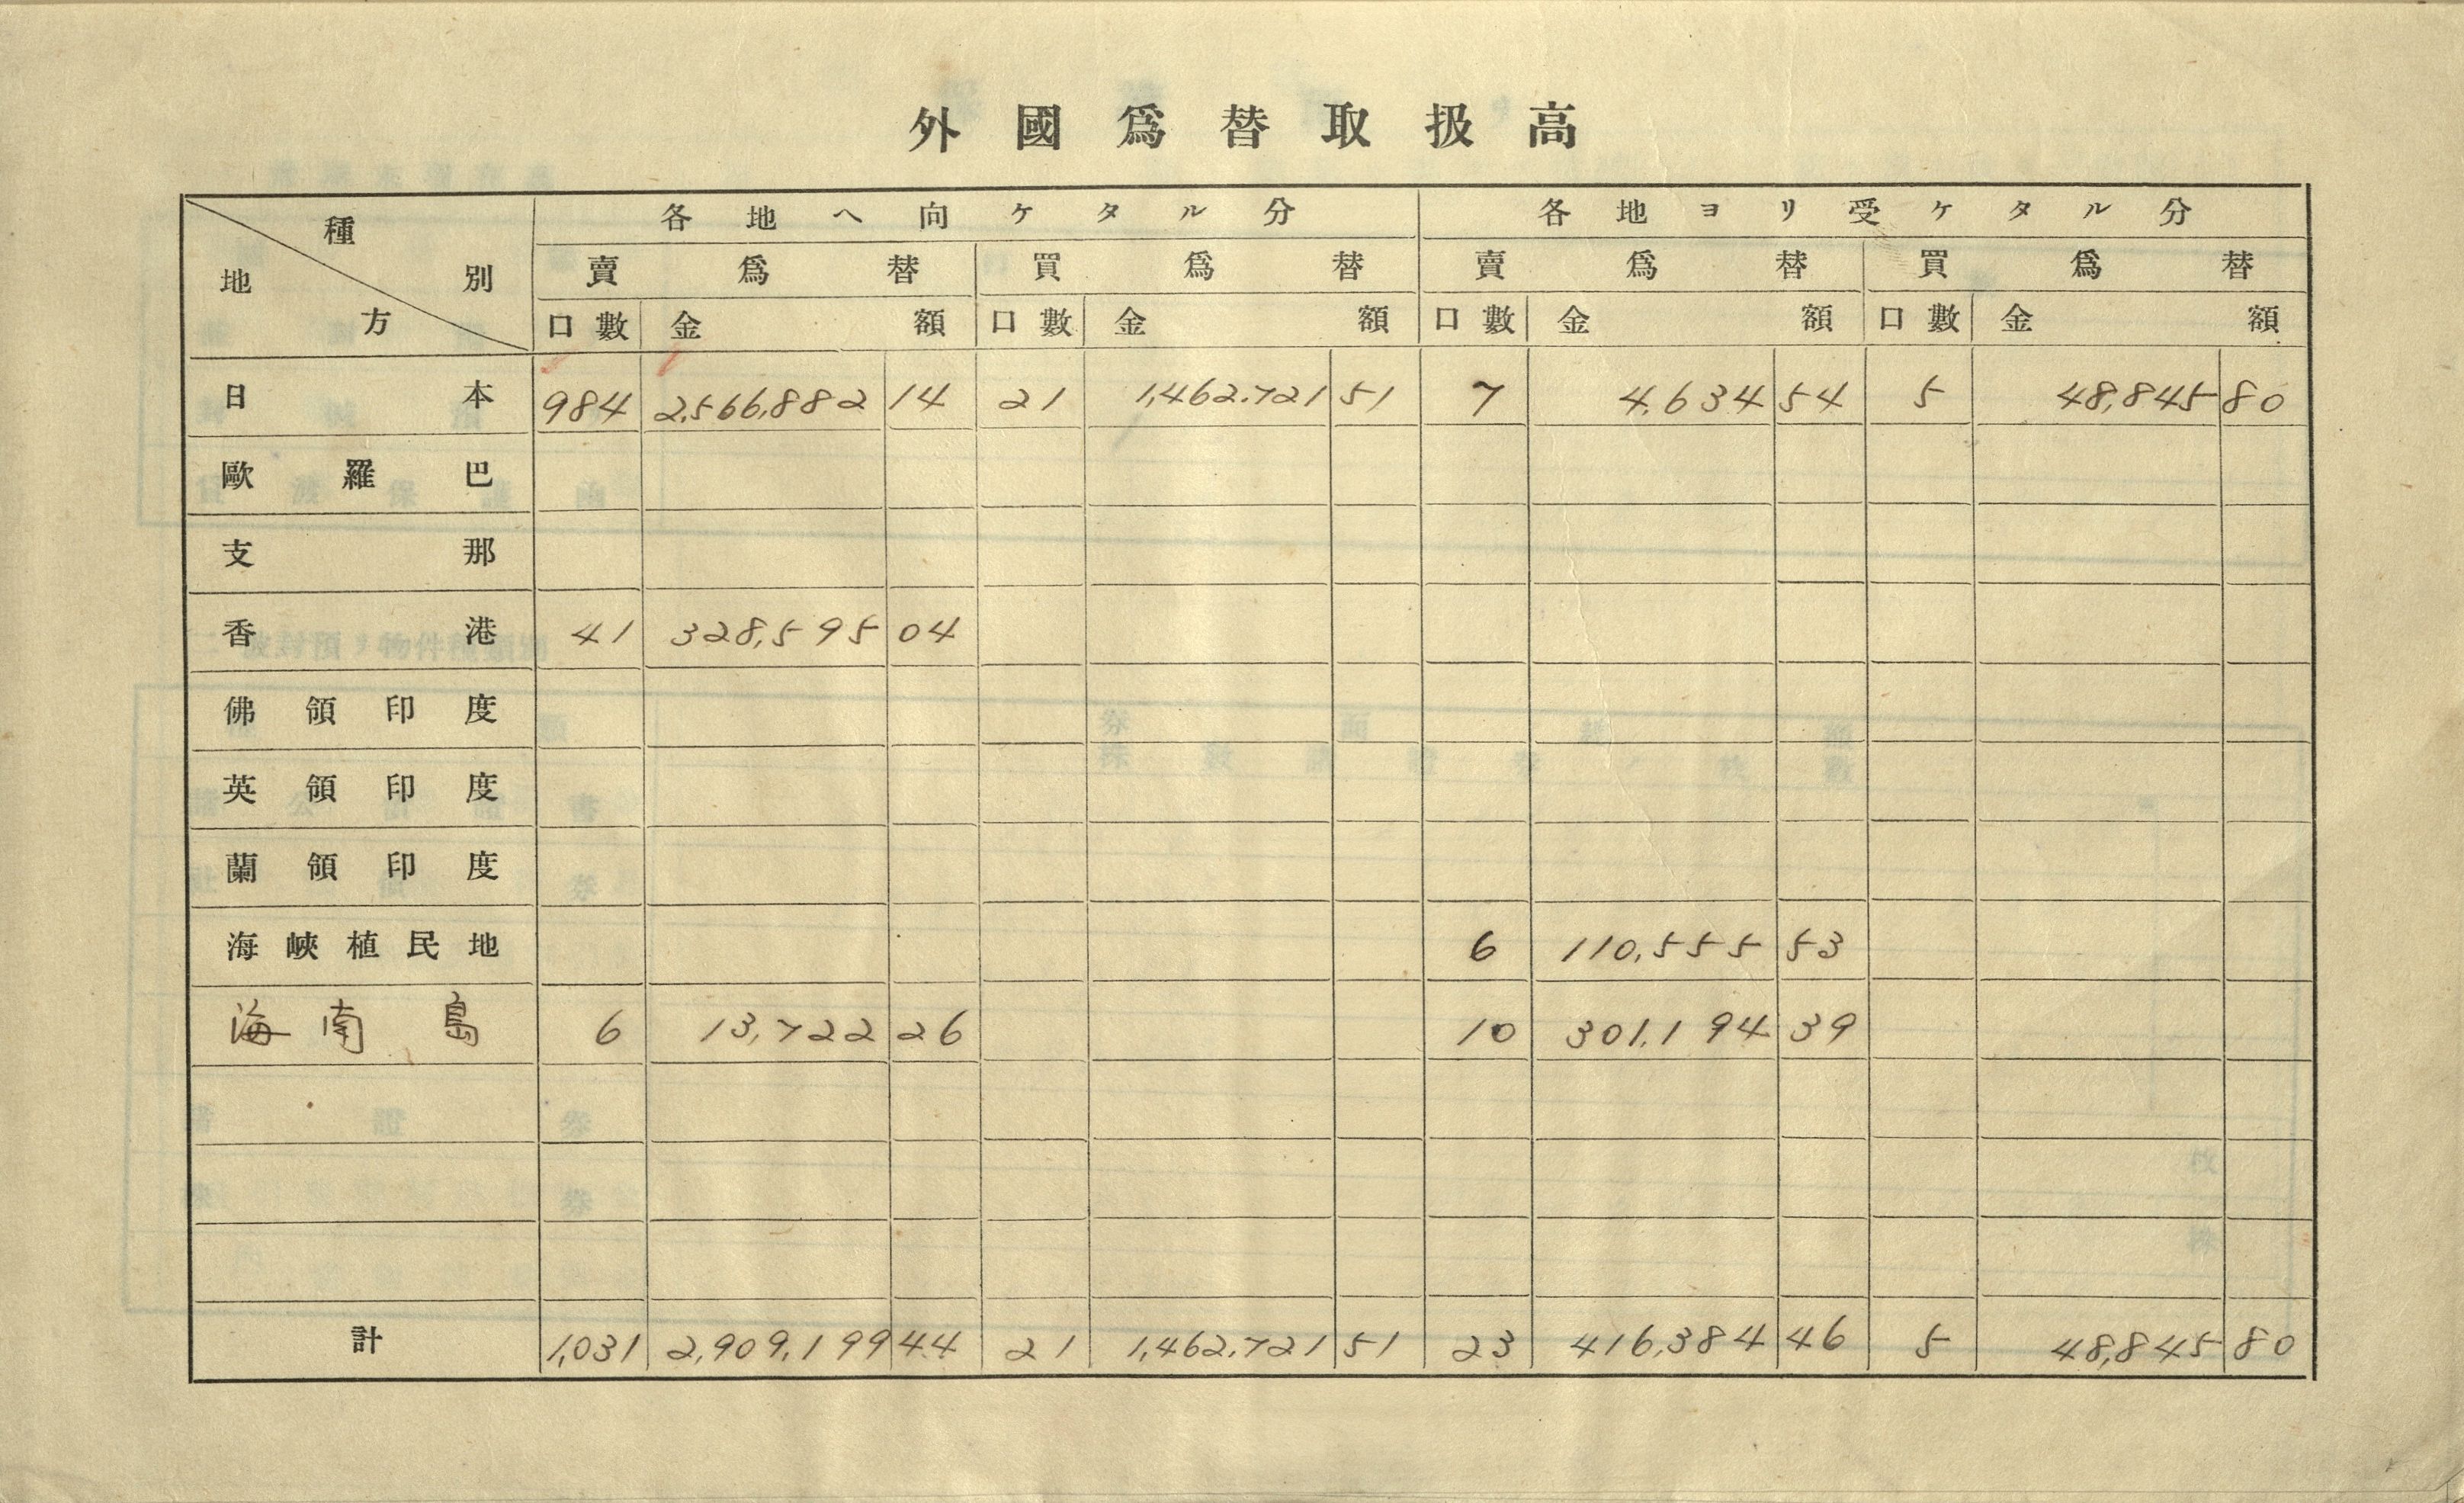 外國爲替取扱高
種別 地方 各地へ向ケタル分 各地ヨリ受ケタル分
賣爲替 買爲替 賣爲替 買爲替
口數 金額 口數 金額 口數 金額 口數 金額
日本 984 2,566,882 14 21 1,462,721 51 7 4,634 54 5 48,845 80
歐羅巴
支那
香港 41 328,595 04
佛領印度
英領印度
蘭領印度
海峽植民地 6 110,555 53
海南島 6 13,722 26 10 301,194 39
計 1,031 2,909,199 44 21 1,462,721 51 23 416,384 46 5 48,845 80